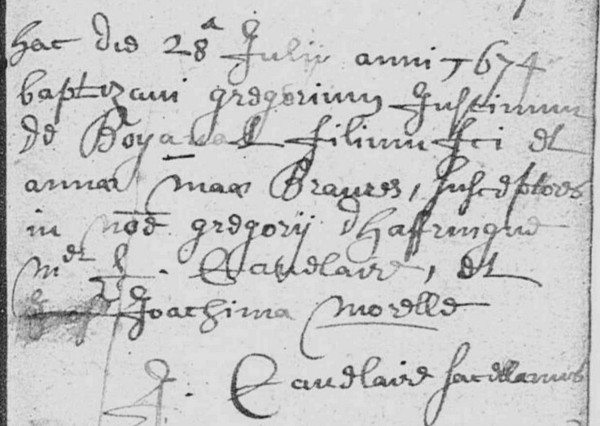 hac die 28ª Julij anni 1674
baptizavi gregorium Justinum
de Boyaval filium Jci et
annae mae Braures, susceptores
in noe gregorij d'haffringue
mer J. Caudlaire, et
Joachima Morelle
J. Caudlaire sacellanus